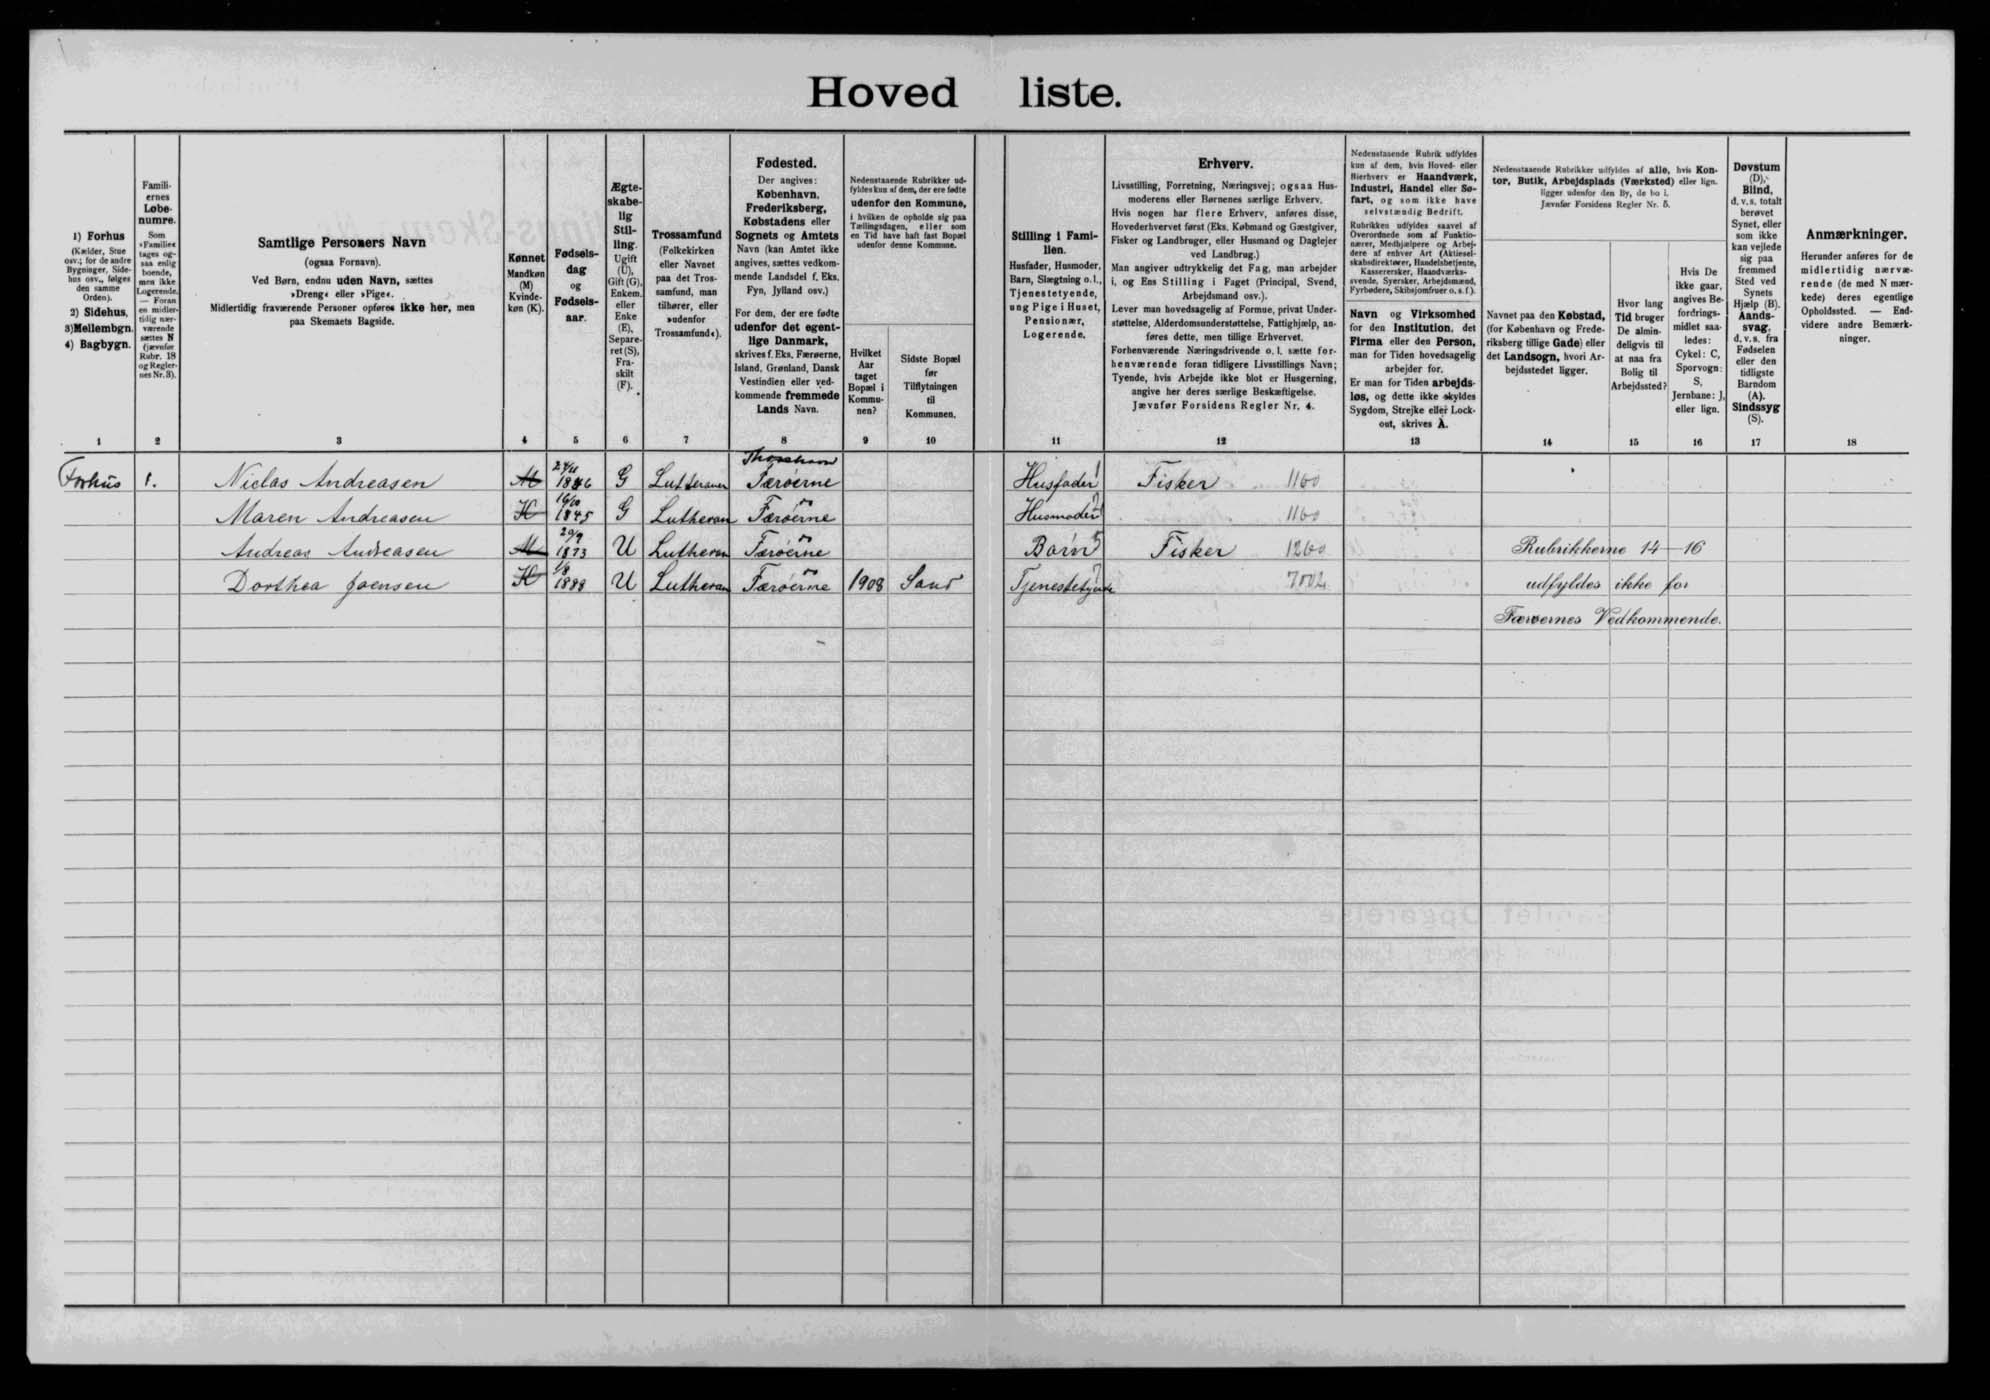 Hovedliste.
1) Forhus
(Kælder, Stue
osv.; for de andre
Bygninger, Side-
hus osv., følges
den samme
Orden).
2) Sidehus,
3) Mellembgn.
4) Bagbygn.
Famili-
ernes
Løbe-
numre.
Som
»Familie«
tages og-
saa enlig
boende,
men ikke
Logerende.
— Foran
en midler-
tidig nær-
værende
sættes N
(jævnfør
Rubr. 18
og Regler-
nes Nr. 3).
Samtlige Personers Navn
(ogsaa Fornavn).
Ved Børn, endnu uden Navn, sættes
»Dreng« eller »Pige«.
Midlertidig fraværende Personer opføres ikke her, men
paa Skemaets Bagside.
Kønnet
Mandkøn
(M)
Kvinde-
køn (K).
Fødsels-
dag
og
Fødsels-
aar.
Ægte-
skabe-
lig
Stil-
ling.
Ugift
(U),
Gift (G),
Enkem.
eller
Enke
(E),
Separe-
ret (S),
Fra-
skilt
(F).
Trossamfund
(Folkekirken
eller Navnet
paa det Tros-
samfund, man
tilhører, eller
»udenfor
Trossamfund«).
Fødested.
Der angives:
København,
Frederiksberg,
Købstadens eller
Sognets og Amtets
Navn (kan Amtet ikke
angives, sættes vedkom-
mende Landsdel f. Eks.
Fyn, Jylland osv.)
For dem, der ere fødte
udenfor det egent-
lige Danmark,
skrives f. Eks. Færøerne,
Island, Grønland, Dansk
Vestindien eller ved-
kommende fremmede
Lands Navn.
Nedenstaaende Rubrikker ud-
fyldes kun af dem, der ere fødte
udenfor den Kommune,
i hvilken de opholde sig paa
Tællingsdagen, eller som
en Tid have haft fast Bopæl
udenfor denne Kommune.
Hvilket
Aar
taget
Bopæl i
Kommu-
nen?
Sidste Bopæl
før
Tilflytningen
til
Kommunen.
Stilling i Fami-
lien.
Husfader, Husmoder,
Barn, Slægtning o. l.,
Tjenestetyende,
ung Pige i Huset,
Pensionær,
Logerende.
Erhverv.
Livsstilling, Forretning, Næringsvej; ogsaa Hus-
moderens eller Børnenes særlige Erhverv.
Hvis nogen har flere Erhverv, anføres disse,
Hovederhvervet først (Eks. Købmand og Gæstgiver,
Fisker og Landbruger, eller Husmand og Daglejer
ved Landbrug.)
Man angiver udtrykkelig det Fag, man arbejder
i, og Ens Stilling i Faget (Principal, Svend,
Arbejdsmand osv.).
Lever man hovedsagelig af Formue, privat Under-
støttelse, Alderdomsunderstøttelse, Fattighjælp, an-
føres dette, men tillige Erhvervet.
Forhenværende Næringsdrivende o. l. sætte for-
henværende foran tidligere Livsstillings Navn;
Tyende, hvis Arbejde ikke blot er Husgerning,
angive her deres særlige Beskæftigelse.
Jævnfør Forsidens Regler Nr. 4.
Nedenstaaende Rubrik udfyldes
kun af dem, hvis Hoved- eller
Bierhverv er Haandværk,
Industri, Handel eller Sø-
fart, og som ikke have
selvstændig Bedrift.
Rubrikken udfyldes saavel af
Overordnede som af Funktio-
nærer, Medhjælpere og Arbej-
dere af enhver Art (Aktiesel-
skabsdirektører, Handelsbetjente,
Kasserersker, Haandværks-
svende, Syersker, Arbejdsmænd,
Fyrbødere, Skibsjomfruer o. s. f.).
Navn og Virksomhed
for den Institution, det
Firma eller den Person,
man for Tiden hovedsagelig
arbejder for.
Er man for Tiden arbejds-
løs, og dette ikke skyldes
Sygdom, Strejke eller Lock-
out, skrives A.
Nedenstaaende Rubrikker udfyldes af alle, hvis Kon-
tor, Butik, Arbejdsplads (Værksted) eller lign.
ligger udenfor den By, de bo i.
Jævnfør Forsidens Regler Nr. 5.
Navnet paa den Købstad,
(for København og Frede-
riksberg tillige Gade) eller
det Landsogn, hvori Ar-
bejdsstedet ligger.
Hvor lang
Tid bruger
De almin-
deligvis til
at naa fra
Bolig til
Arbejdssted?
Hvis De
ikke gaar,
angives Be-
fordrings-
midlet saa-
ledes:
Cykel: C,
Sporvogn:
S,
Jernbane: J,
eller lign.
Døvstum
(D),
Blind,
d. v. s. totalt
berøvet
Synet, eller
som ikke
kan vejlede
sig paa
fremmed
Sted ved
Synets
Hjælp (B).
Aands-
svag,
d. v. s. fra
Fødselen
eller den
tidligste
Barndom
(A).
Sindssyg
(S).
Anmærkninger.
Herunder anføres for de
midlertidig nærvæ-
rende (de med N mær-
kede) deres egentlige
Opholdssted. — End-
videre andre Bemærk-
ninger.
1 2 3 4 5 6 7 8 9 10 11 12 13 14 15 16 17 18
Thorshavn
Forhus 1. Niclas Andreasen M 24/11 1846 G Lutheraner Færøerne Husfader 1 Fisker 1160
Maren Andreasen K 16/10 1845 G Lutheran Færøerne Husmoder 1160
Andreas Andreasen M 20/9 1873 U Lutheran Færøerne Barn 5 Fisker 1260 Rubrikkerne 14—16
Dorthea Joensen K 1/8 1888 U Lutheran Færøerne 1908 Sand Tjenestetyende 7 7002 udfyldes ikke for
Færøernes Vedkommende.